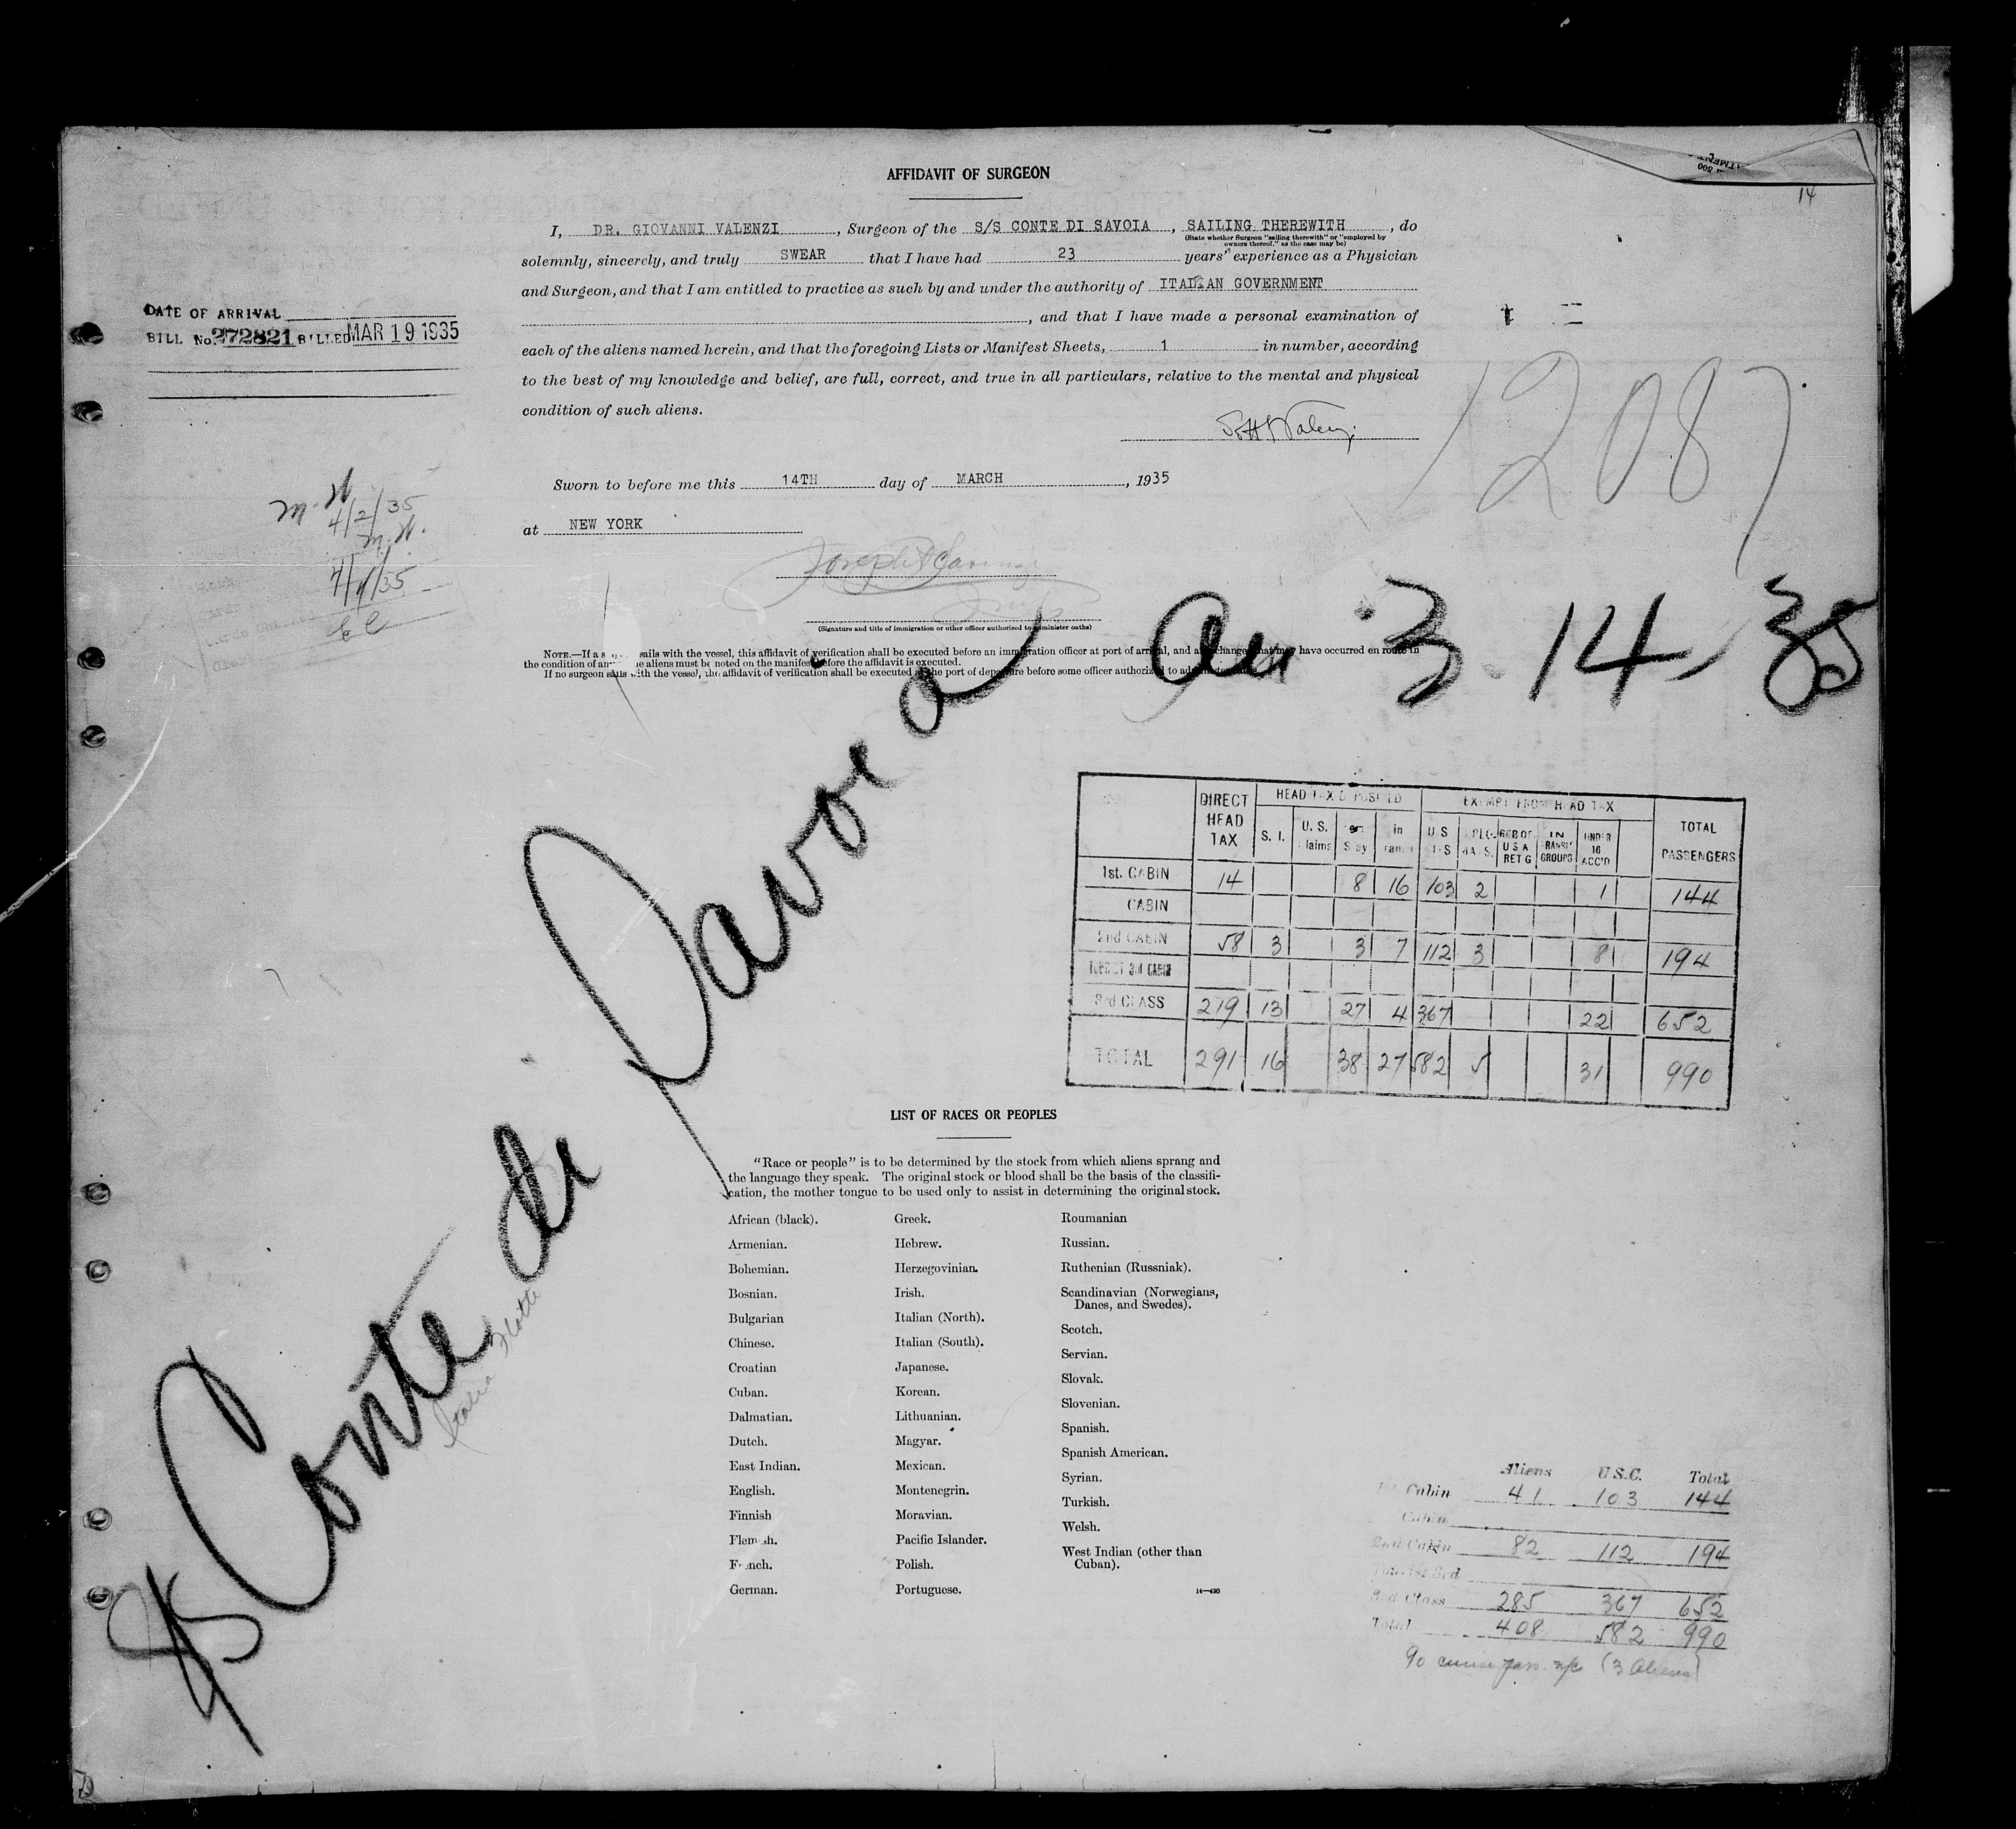 AFFIDAVIT OF SURGEON
14
I, DR. GIOVANNI VALENZI, Surgeon of the S/S CONTE DI SAVOIA, SAILING THEREWITH, do
(State whether Surgeon "sailing therewith" or "employed by
owners thereof," as the case may be)
solemnly, sincerely, and truly SWEAR that I have had 23 years' experience as a Physician
and Surgeon, and that I am entitled to practice as such by and under the authority of ITALIAN GOVERNMENT
, and that I have made a personal examination of
each of the aliens named herein, and that the foregoing Lists or Manifest Sheets, 1 in number, according
to the best of my knowledge and belief, are full, correct, and true in all particulars, relative to the mental and physical
condition of such aliens.
DATE OF ARRIVAL
BILL No. 272821 BILLED MAR 19 1935
12087
Sworn to before me this 14TH day of MARCH, 1935
at NEW YORK
M.W.
4/2/35
M.W.
35
(Signature and title of immigration or other officer authorized to administer oaths)
NOTE.—If a sails with the vessel, this affidavit of verification shall be executed before an immigration officer at port of arrival, and any changes that may have occurred en route in
the condition of any the aliens must be noted on the manifest before the affidavit is executed.
If no surgeon sails with the vessel, the affidavit of verification shall be executed at the port of departure before some officer authorized to
SS Conte di Savoia arr 3.14.35
Italia Flotte
DIRECT HEAD TAX HEAD TAX DEPOSITED EXEMPT FROM HEAD TAX TOTAL PASSENGERS
S. I. U. S. Claims in U.S. U.S.A. RET'G IN TRANSIT GROUPS UNDER 16 ACC'D
1st. CABIN 14 8 16 103 2 1 144
CABIN
2nd CABIN 58 3 3 7 112 3 8 194
TOURIST 3rd CABIN
3rd CLASS 219 13 27 4 367 22 652
TOTAL 291 16 38 27 582 5 31 990
LIST OF RACES OR PEOPLES
"Race or people" is to be determined by the stock from which aliens sprang and
the language they speak. The original stock or blood shall be the basis of the classifi-
cation, the mother tongue to be used only to assist in determining the original stock.
African (black).
Armenian.
Bohemian.
Bosnian.
Bulgarian
Chinese.
Croatian
Cuban.
Dalmatian.
Dutch.
East Indian.
English.
Finnish
Flemish.
French.
German.
Greek.
Hebrew.
Herzegovinian.
Irish.
Italian (North).
Italian (South).
Japanese.
Korean.
Lithuanian.
Magyar.
Mexican.
Montenegrin.
Moravian.
Pacific Islander.
Polish.
Portuguese.
Roumanian
Russian.
Ruthenian (Russniak).
Scandinavian (Norwegians,
Danes, and Swedes).
Scotch.
Servian.
Slovak.
Slovenian.
Spanish.
Spanish American.
Syrian.
Turkish.
Welsh.
West Indian (other than
Cuban).
14—430
Aliens U.S.C. Total
Cabin 41 103 144
Cabin
2nd Cabin 82 112 194
Tourist 3rd
3rd Class 285 367 652
Total 408 582 990
90 cruise pass. (3 Aliens)